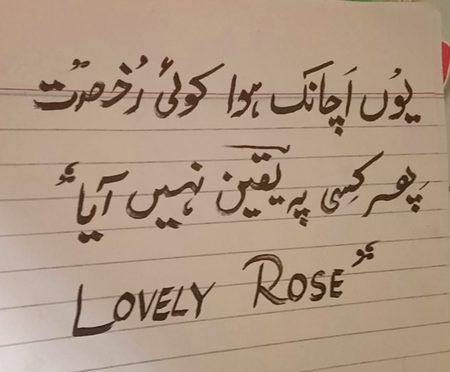 یوُں اَچانک ہوا کوئی رُخصت
پَھر کسِی پہ یقین نہیں آیا
LOVELY ROSE